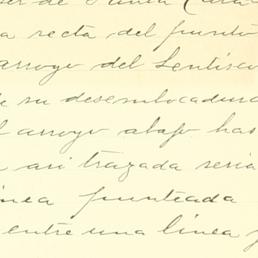 ser de Punta
a recta del punto
arroyo del Lentisco
e su desembocadura
l arroyo abajo has
a asi trazada seria
inea punteada
entre una linea